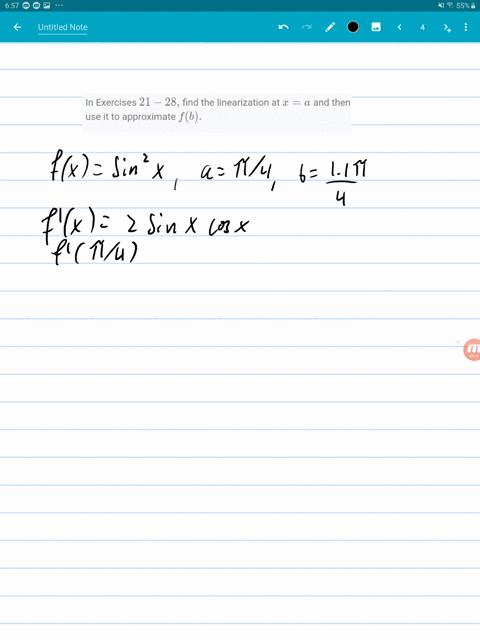 6:57 55%
Untitled Note 4
In Exercises 21 − 28, find the linearization at x = a and then
use it to approximate f(b).
f(x) = Sin² x, a = π/4, b = 1.1π/4
f'(x) = 2 Sin x cos x
f'(π/4)